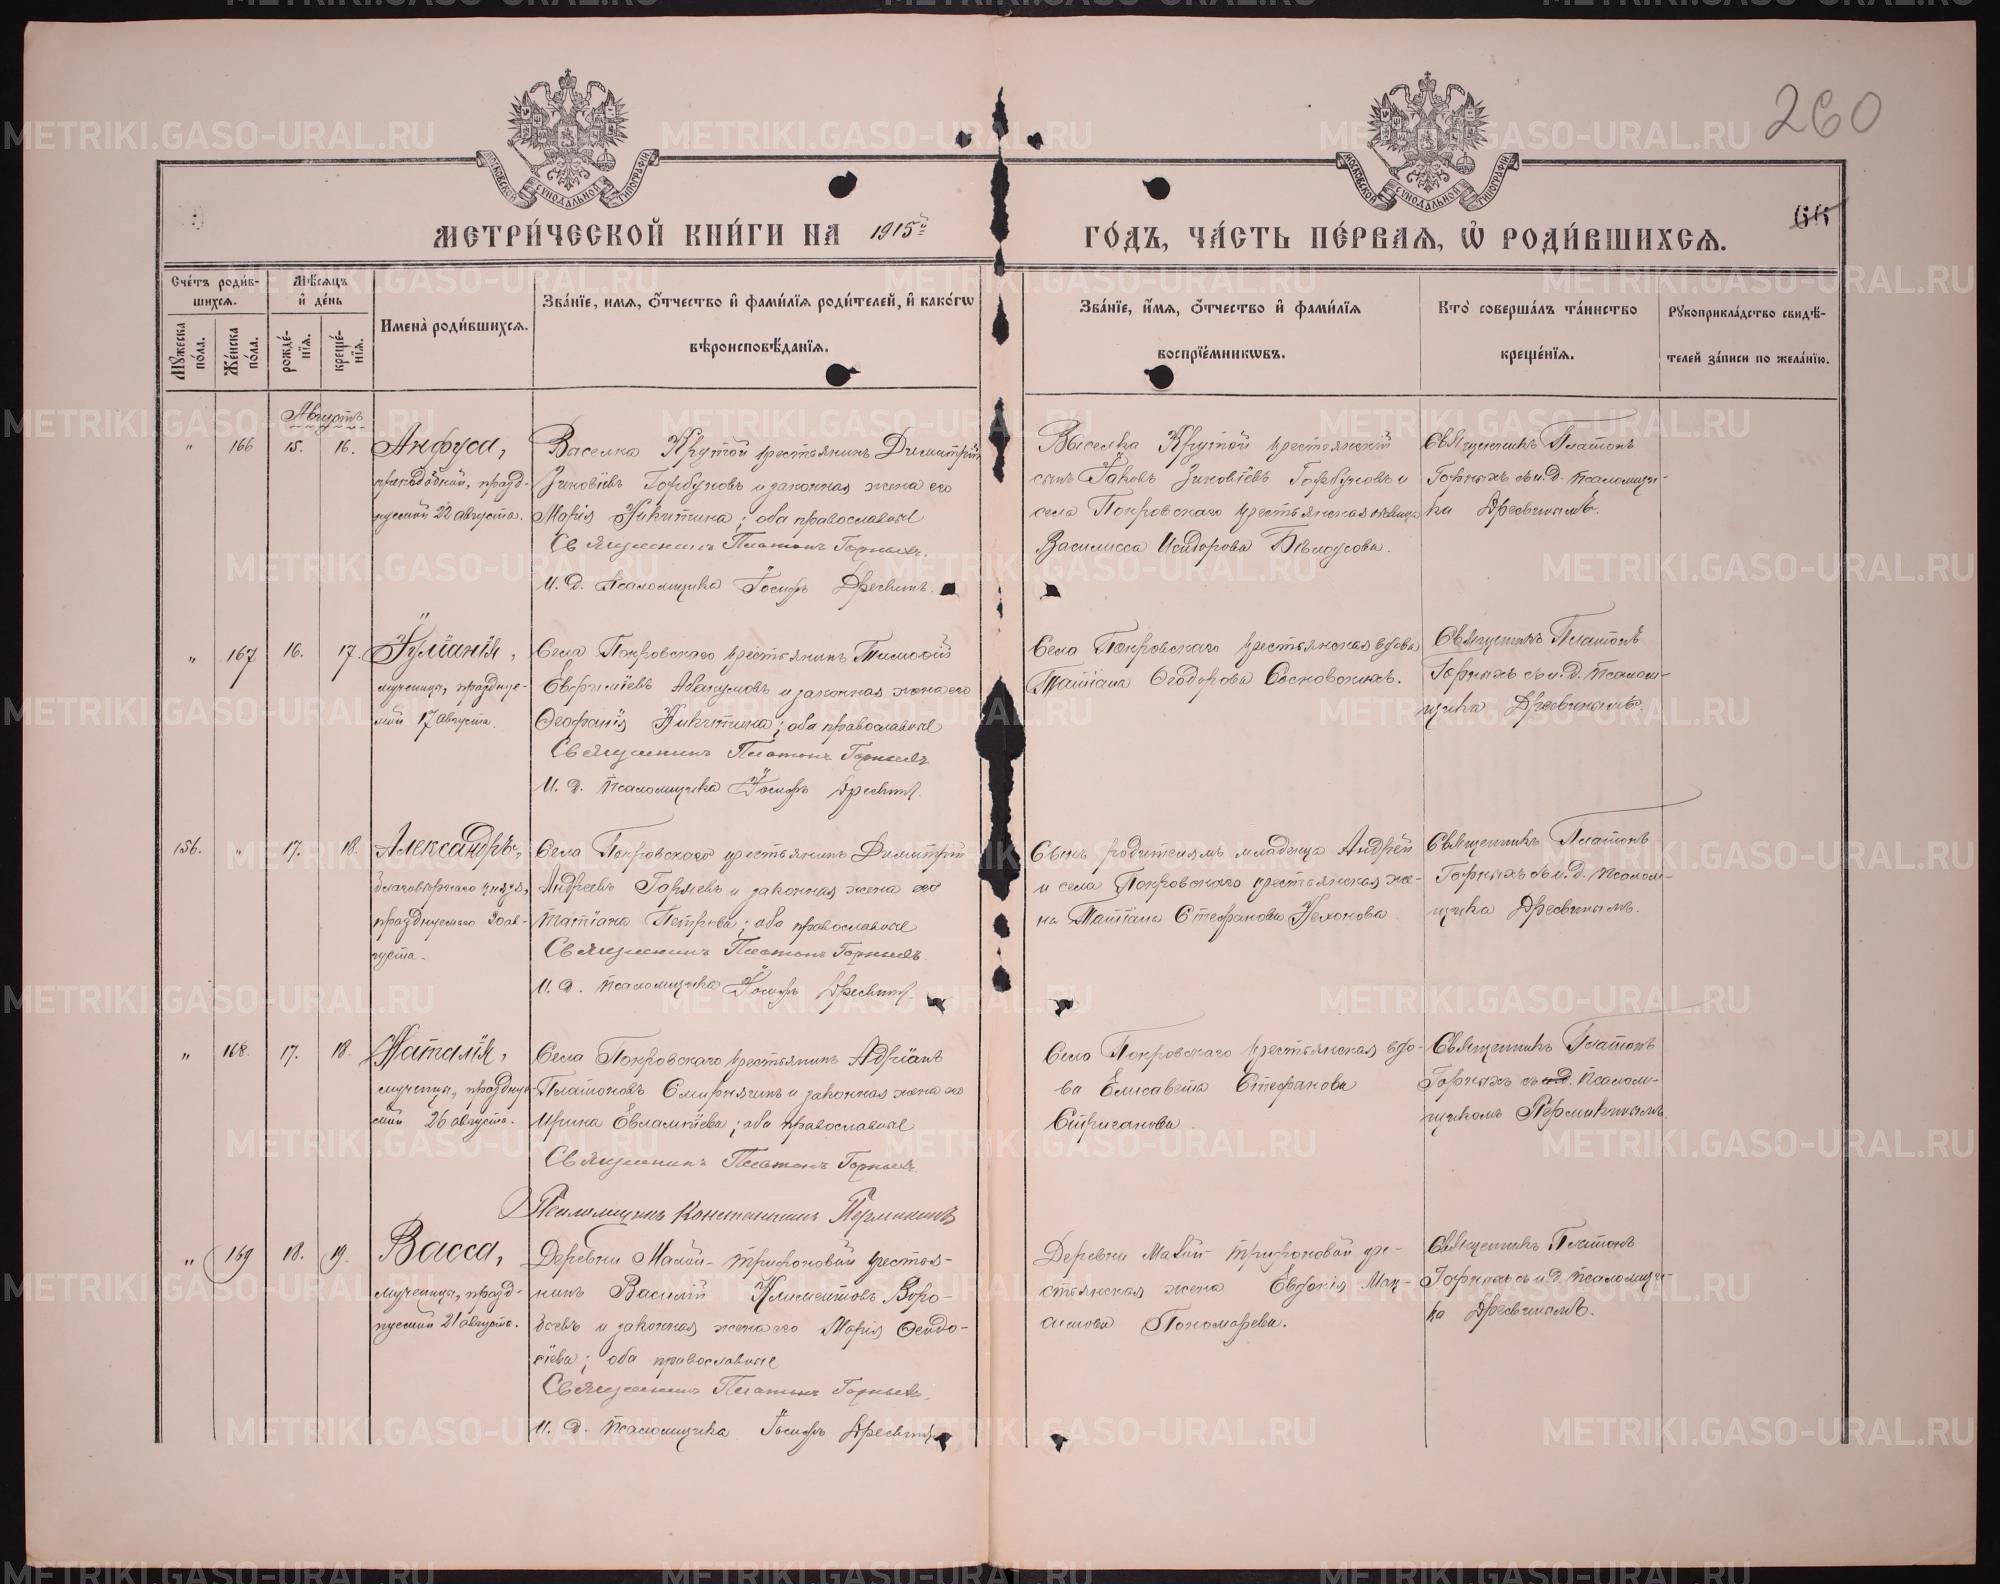 260
МОСКОВСКОЙ СѴНОДАЛЬНОЙ ТИПОГРАФІИ
МОСКОВСКОЙ СѴНОДАЛЬНОЙ ТИПОГРАФІИ
МЕТРИ́ЧЕСКОЙ КНИ́ГИ НА 1915й
ГО́ДЪ, ЧА́СТЬ ПЕ́РВАЯ, Ѡ҆ РОДИ́ВШИХСЯ.
Сче́тъ роди́в-
шихся.
Мꙋ́жеска по́ла.
Же́нска по́ла.
Мѣ́сяцъ
и҆ де́нь
рожде́-
нїя.
креще́-
нїя.
Имена̀ роди́вшихся.
Зва́нїе, имя, ѻ҆́тчество и҆ фами́лїя роди́телей, и҆ како́гѡ
вѣроисповѣ́данїя.
Зва́нїе, и҆́мя, ѻ҆́тчество и҆ фами́лїя
воспрїе́мникѡвъ.
Кто̀ соверша́лъ та́инство
креще́нїя.
Рꙋкоприкла́дство свидѣ́-
телей за́писи по жела́нїю.
Августъ
" 166 15. 16. Анфуса,
преподобной, празд-
нуемой 22 августа.
Выселка Крутой крестьянинъ Димитрій
Зиновіевъ Горбуновъ и законная жена его
Марія Никитина; оба православные
Священникъ Платонъ Горныхъ.
И. д. псаломщика Іосифъ Дресвинъ.
Выселка Крутой крестьянскій
сынъ Іаковъ Зиновіевъ Горбуновъ и
села Покровскаго крестьянская девица
Василисса Исидорова Бѣлоусова.
Священникъ Платонъ
Горныхъ съ и.д. псаломщи-
ка Дресвинымъ.
" 167 16. 17. Іуліанія,
мученицы, праздну-
емой 17 августа.
Села Покровскаго крестьянинъ Тимофей
Евфиміевъ Абакумовъ и законная жена его
Ѳеофанія Никитина; оба православные
Священникъ Платонъ Горныхъ
И. д. псаломщика Іосифъ Дресвинъ.
Села Покровскаго крестьянская вдова
Татіана Ѳеодорова Сосновскихъ.
Священникъ Платонъ
Горныхъ съ и.д. псалом-
щика Дресвинымъ.
156. " 17. 18. Александръ,
благовѣрнаго князя,
празднуемаго 30 ав-
густа.
Села Покровскаго крестьянинъ Димитрій
Андреевъ Горяевъ и законная жена его
Татіана Петрова; оба православные
Священникъ Платонъ Горныхъ.
И. д. псаломщика Іосифъ Дресвинъ.
Сынъ родителямъ младенца Андрей
и села Покровскаго крестьянская же-
на Татіана Стефанова
Священникъ Платонъ
Горныхъ съ и.д. псалом-
щика Дресвинымъ.
" 168. 17. 18. Наталія,
мученицы, праздну-
емой 26 августа.
Села Покровскаго крестьянинъ Адріанъ
Платоновъ Смирнягинъ и законная жена его
Ирина Евлампіева; оба православные
Священникъ Платонъ Горныхъ.
Псаломщикъ Константинъ Пермикинъ
Села Покровскаго крестьянская вдо-
ва Елисавета Стефанова
Стриганова.
Священникъ Платонъ
Горныхъ съ псалом-
щикомъ Пермикинымъ.
" 169 18. 19. Васса,
мученицы, празд-
нуемой 21 августа.
Деревни Малой-Трифоновой крестья-
нинъ Василій Климентовъ Воро-
бьевъ и законная жена его Марія Ѳеодо-
сіева; оба православные
Священникъ Платонъ Горныхъ.
И. д. псаломщика Іосифъ Дресвинъ
Деревни Малой-Трифоновой кре-
стьянская жена Евдокія Мак-
симова Пономарева.
Священникъ Платонъ
Горныхъ съ и.д. псаломщи-
ка Дресвинымъ.